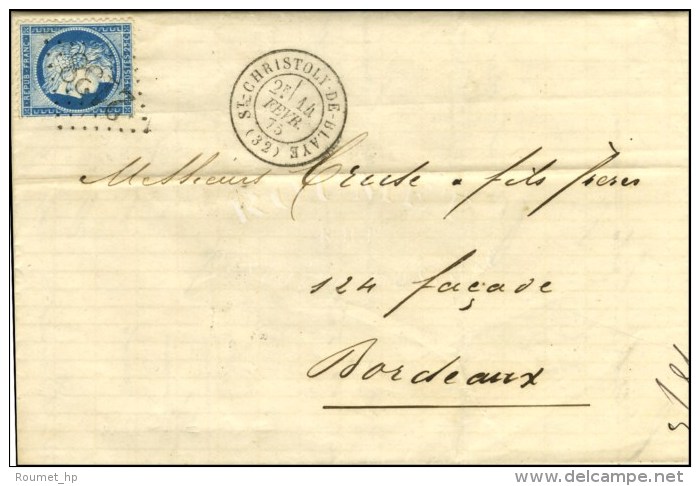 REPUB. FRANC.
ST-CHRISTOLY-DE-BLAYE (32)
2E 14
FEVR.
75
Messieurs Cruse & fils frères
124 façade
Bordeaux
Roumet_hp
delcampe.net